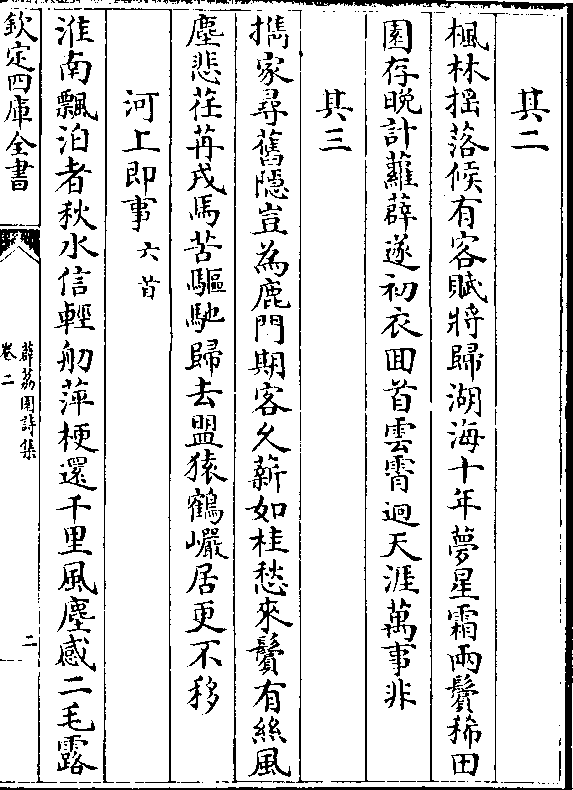 其二
楓林揺落候有客賦將歸湖海十年夢星霜兩鬢稀田
園存晚計蘿薜遂初衣回首雲霄迥天涯萬事非
其三
攜家尋舊隱豈為鹿門期客久薪如桂愁來鬢有絲風
塵悲荏苒戎馬苦驅馳歸去盟猿鶴巖居更不移
河上即事六首
淮南飄泊者秋水信輕舠萍梗還千里風塵感二毛露
欽定四庫全書
薜荔園詩集
卷二
二